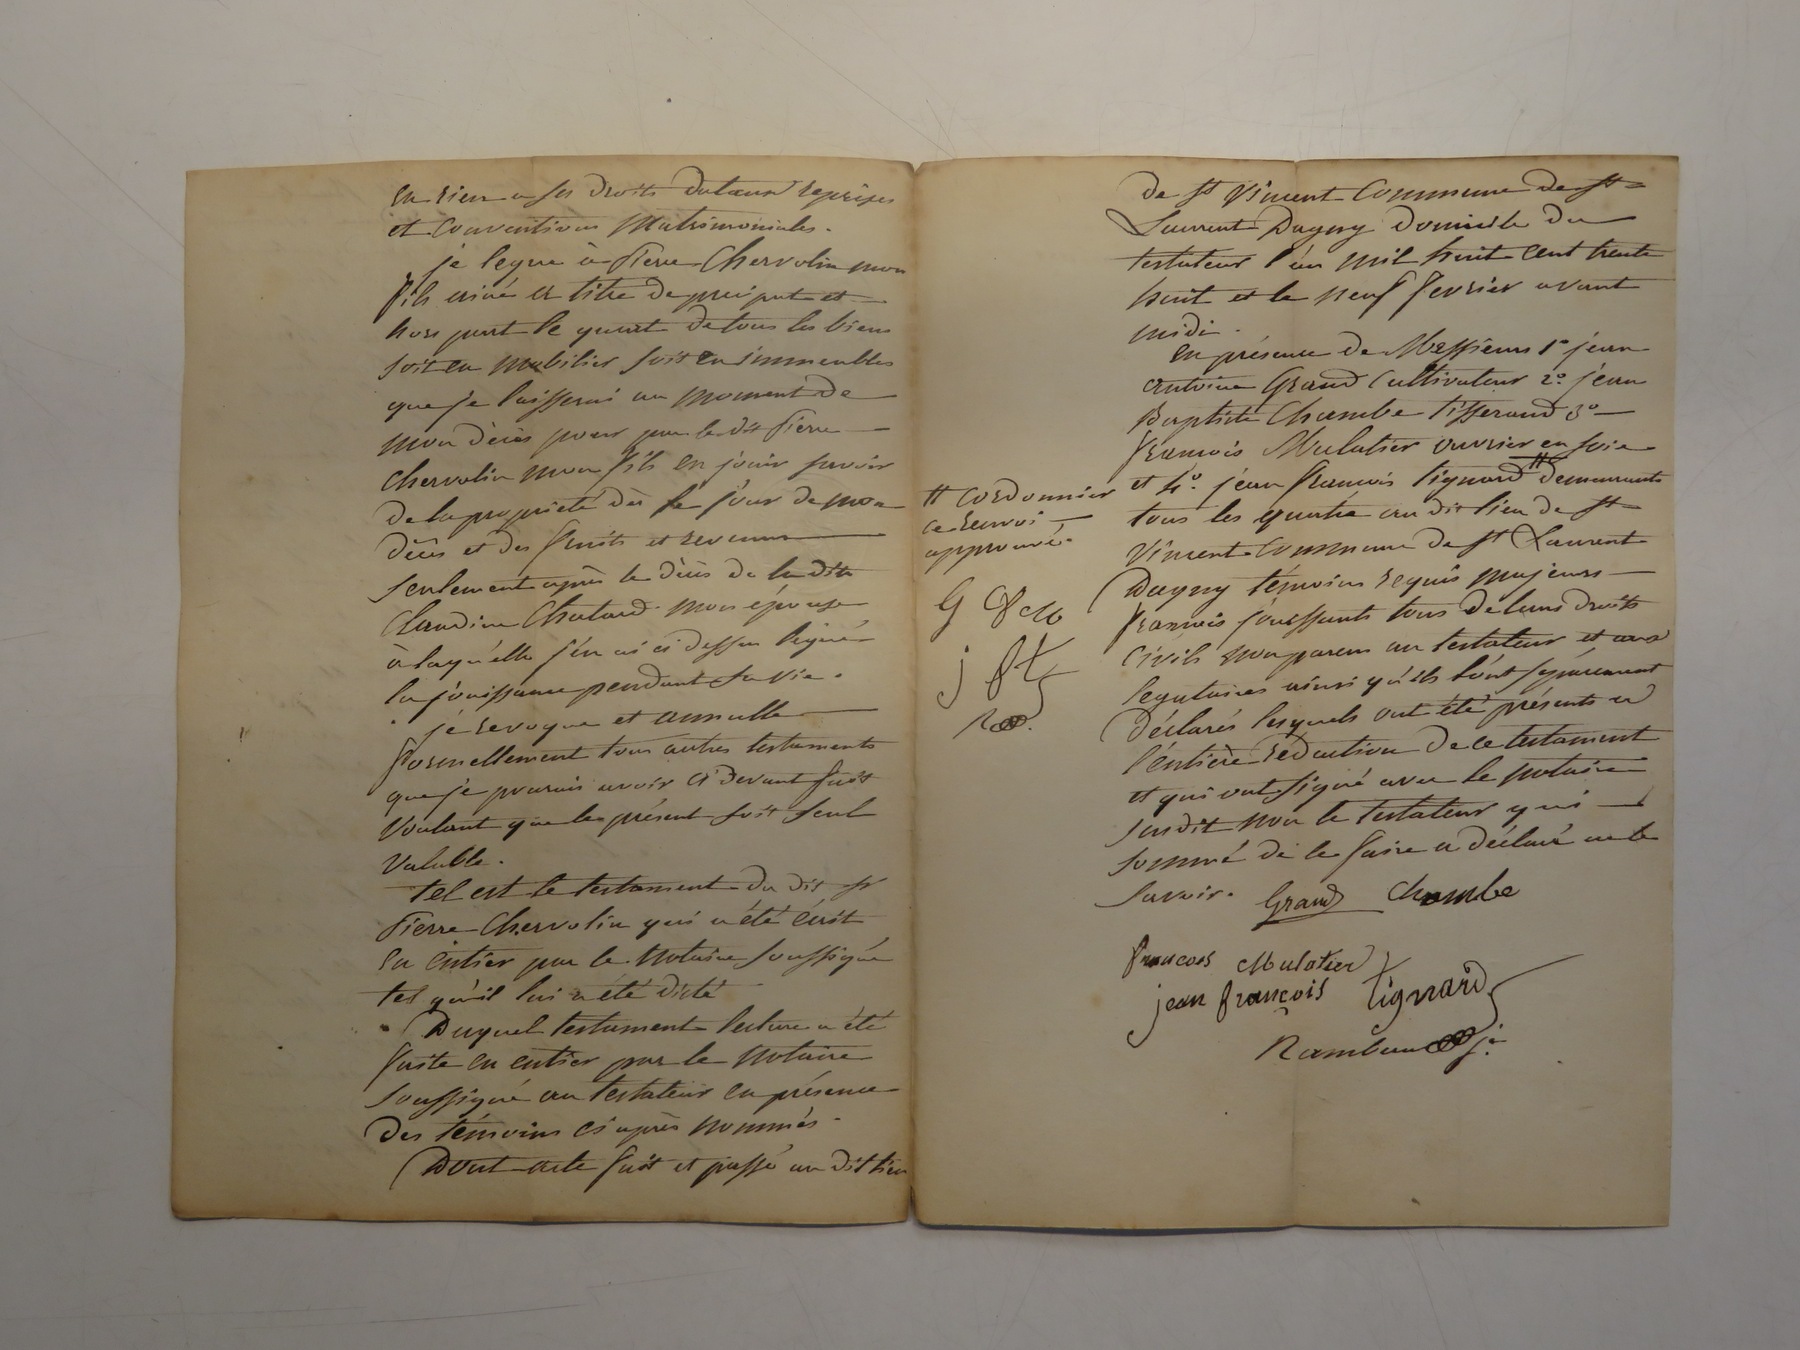 en rien a ses droits dotaux reprises
et Conventions Matrimoniales.
je legue à Pierre Chervolin mon
fils ainé a titre de preciput et
hors part le quart de tous les biens
soit en mobilier soit en immeubles
que je laisserai au moment de
mon décès pour par le dit Pierre
Chervolin mon fils en jouir savoir
de la propriété dès le jour de mon
décès et des fruits et revenus
seulement après le décès de la dite
Claudine Chatard mon épouse
à laquelle j'en ai ci dessus legué
la jouissance pendant sa vie.
je revoque et annulle
formellement tous autres testaments
que je pourais avoir ci devant fait
Voulant que le présent soit seul
Valable.
tel est le testament du dit sr
Pierre Chervolin qui a été écrit
en entier par le Notaire soussigné
tel qu'il lui a été dicté
Duquel testament lecture a été
faite en entier par le Notaire
soussigné au testateur en présence
des témoins ci après nommés.
Dont acte fait et passé au dit lieu
de st Vincent Commune de st
Laurent Dagny domicile du
testateur l'an mil huit cent trente
huit et le neuf fevrier avant
midi.
en présence de Messieurs 1º jean
antoine Grand Cultivateur 2º. jean
Baptiste Chambe tisserand 3º
françois Mulatier ouvrier en soie
et 4º. jean françois tignard # demeurants
tous les quatre au dit lieu de st
Vincent Commune de st Laurent
Dagny témoins requis majeurs
français jouissants tous de leurs droits
Civils non parens au testateur et aux
legataires ainsi qu'ils l'ont séparement
déclarés lesquels ont été présents a
l'entière rédaction de ce testament
et qui ont signé avec le notaire
susdit non le testateur qui
sommé de le faire a déclaré ne le
savoir. Grand Chambe
francois Mulatier
jean françois tignard
# Cordonnier
ce renvoi
approuvé.
G
j f t